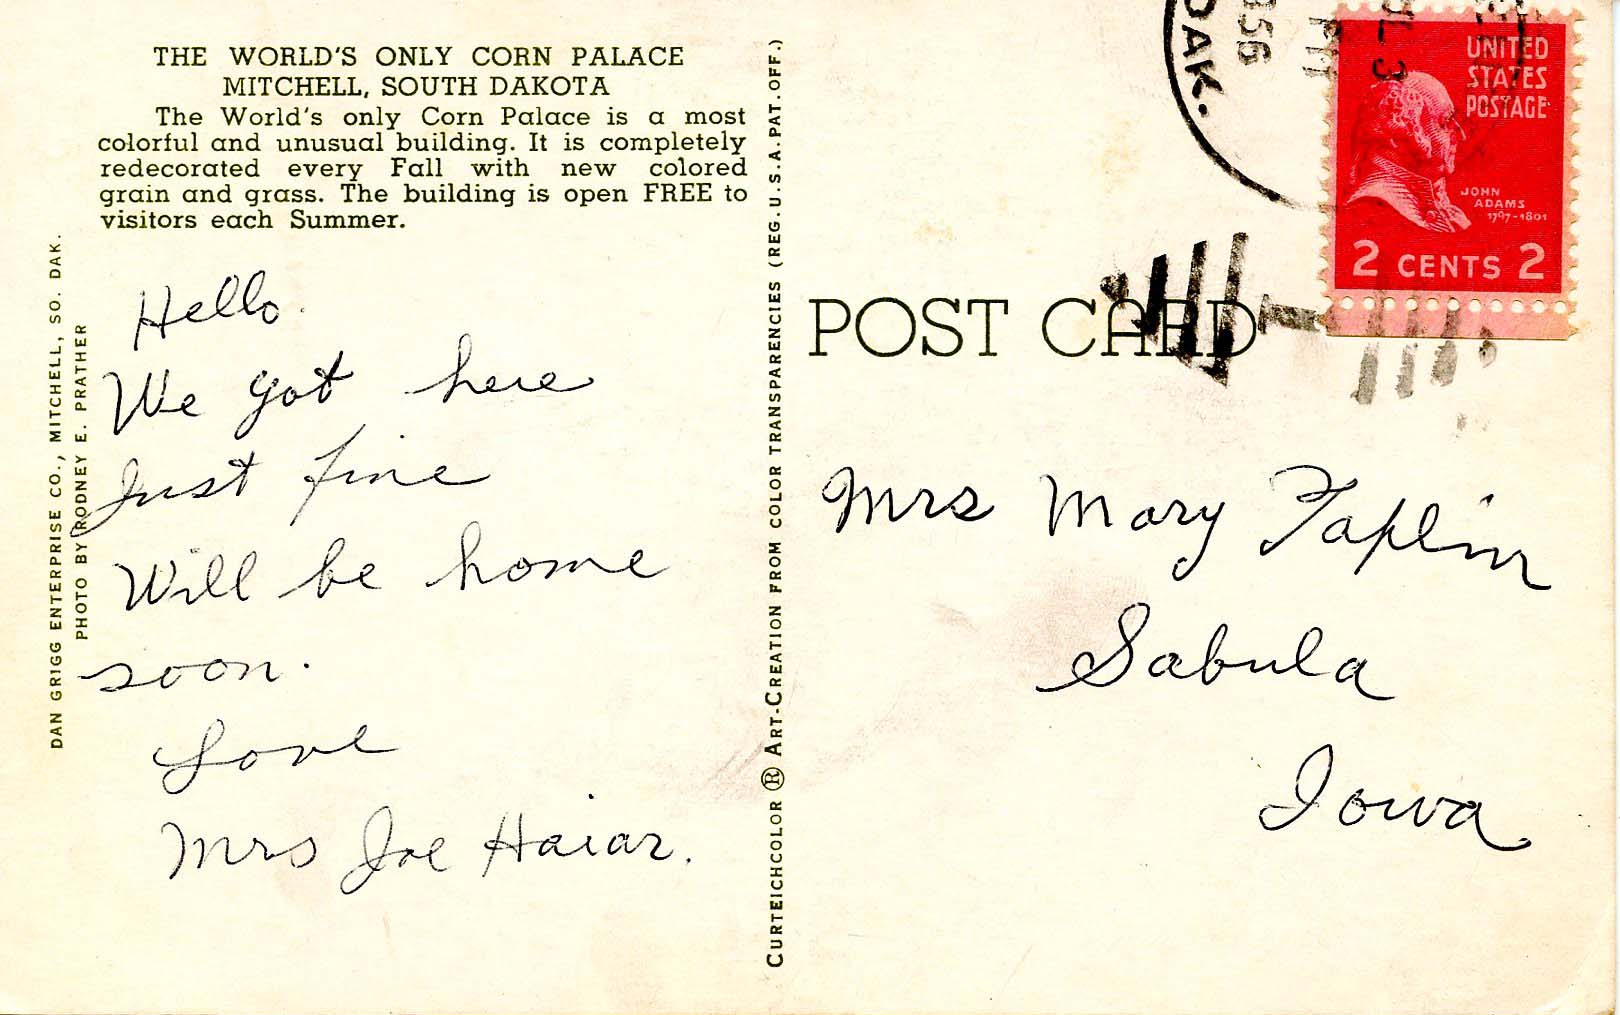 THE WORLD'S ONLY CORN PALACE
MITCHELL, SOUTH DAKOTA
The World's only Corn Palace is a most
colorful and unusual building. It is completely
redecorated every Fall with new colored
grain and grass. The building is open FREE to
visitors each Summer.
DAN GRIGG ENTERPRISE CO., MITCHELL, SO. DAK.
PHOTO BY RODNEY E. PRATHER
Hello.
We got here
Just fine
Will be home
soon.
Love
Mrs Joe Haiar.
CURTEICHCOLOR ® ART-CREATION FROM COLOR TRANSPARENCIES (REG.U.S.A.PAT.OFF.)
DAK.
1956
PM
UNITED
STATES
POSTAGE
JOHN
ADAMS
1797-1801
2 CENTS 2
POST CARD
Mrs Mary Taplin
Sabula
Iowa